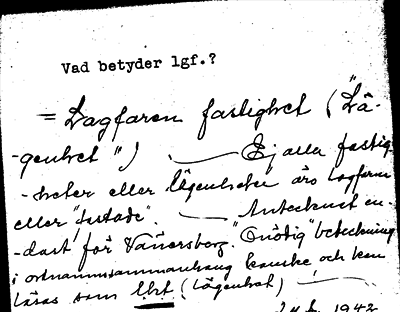 Vad betyder lgf.?
= Lagfaren fastighet ("Lä-
-genhet") . — Ej alla fastig-
-heter eller lägenheter äro lagfarna
eller "tutade". — Antecknat en-
-dast för Vänersborg. "Onödig" beteckning
i ortnamnssammanhang kanske och kan
läsas som lht (Lägenhet) —
1942